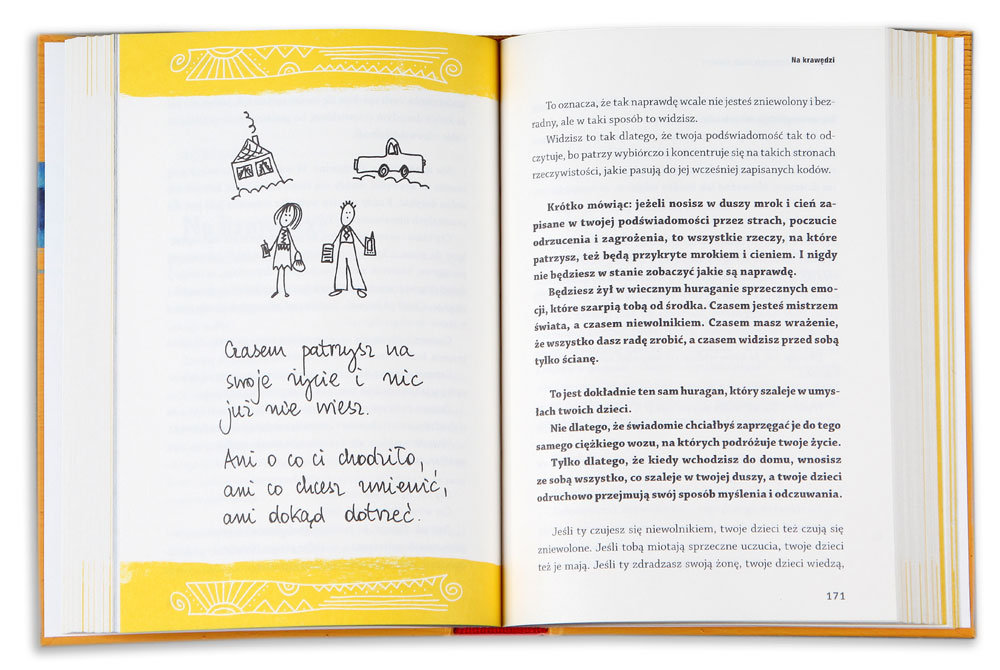 Czasem patrzysz na
swoje życie i nic
już nie wiesz.
Ani o co ci chodziło,
ani co chcesz zmienić,
ani dokąd dotrzeć.
Na krawędzi
To oznacza, że tak naprawdę wcale nie jesteś zniewolony i bez-
radny, ale w taki sposób to widzisz.
Widzisz to tak dlatego, że twoja podświadomość tak to od-
czytuje, bo patrzy wybiórczo i koncentruje się na takich stronach
rzeczywistości, jakie pasują do jej wcześniej zapisanych kodów.
Krótko mówiąc: jeżeli nosisz w duszy mrok i cień za-
pisane w twojej podświadomości przez strach, poczucie
odrzucenia i zagrożenia, to wszystkie rzeczy, na które
patrzysz, też będą przykryte mrokiem i cieniem. I nigdy
nie będziesz w stanie zobaczyć jakie są naprawdę.
Będziesz żył w wiecznym huraganie sprzecznych emo-
cji, które szarpią tobą od środka. Czasem jesteś mistrzem
świata, a czasem niewolnikiem. Czasem masz wrażenie,
że wszystko dasz radę zrobić, a czasem widzisz przed sobą
tylko ścianę.
To jest dokładnie ten sam huragan, który szaleje w umys-
łach twoich dzieci.
Nie dlatego, że świadomie chciałbyś zaprzęgać je do tego
samego ciężkiego wozu, na których podróżuje twoje życie.
Tylko dlatego, że kiedy wchodzisz do domu, wnosisz
ze sobą wszystko, co szaleje w twojej duszy, a twoje dzieci
odruchowo przejmują swój sposób myślenia i odczuwania.
Jeśli ty czujesz się niewolnikiem, twoje dzieci też czują się
zniewolone. Jeśli tobą miotają sprzeczne uczucia, twoje dzieci
też je mają. Jeśli ty zdradzasz swoją żonę, twoje dzieci wiedzą,
171